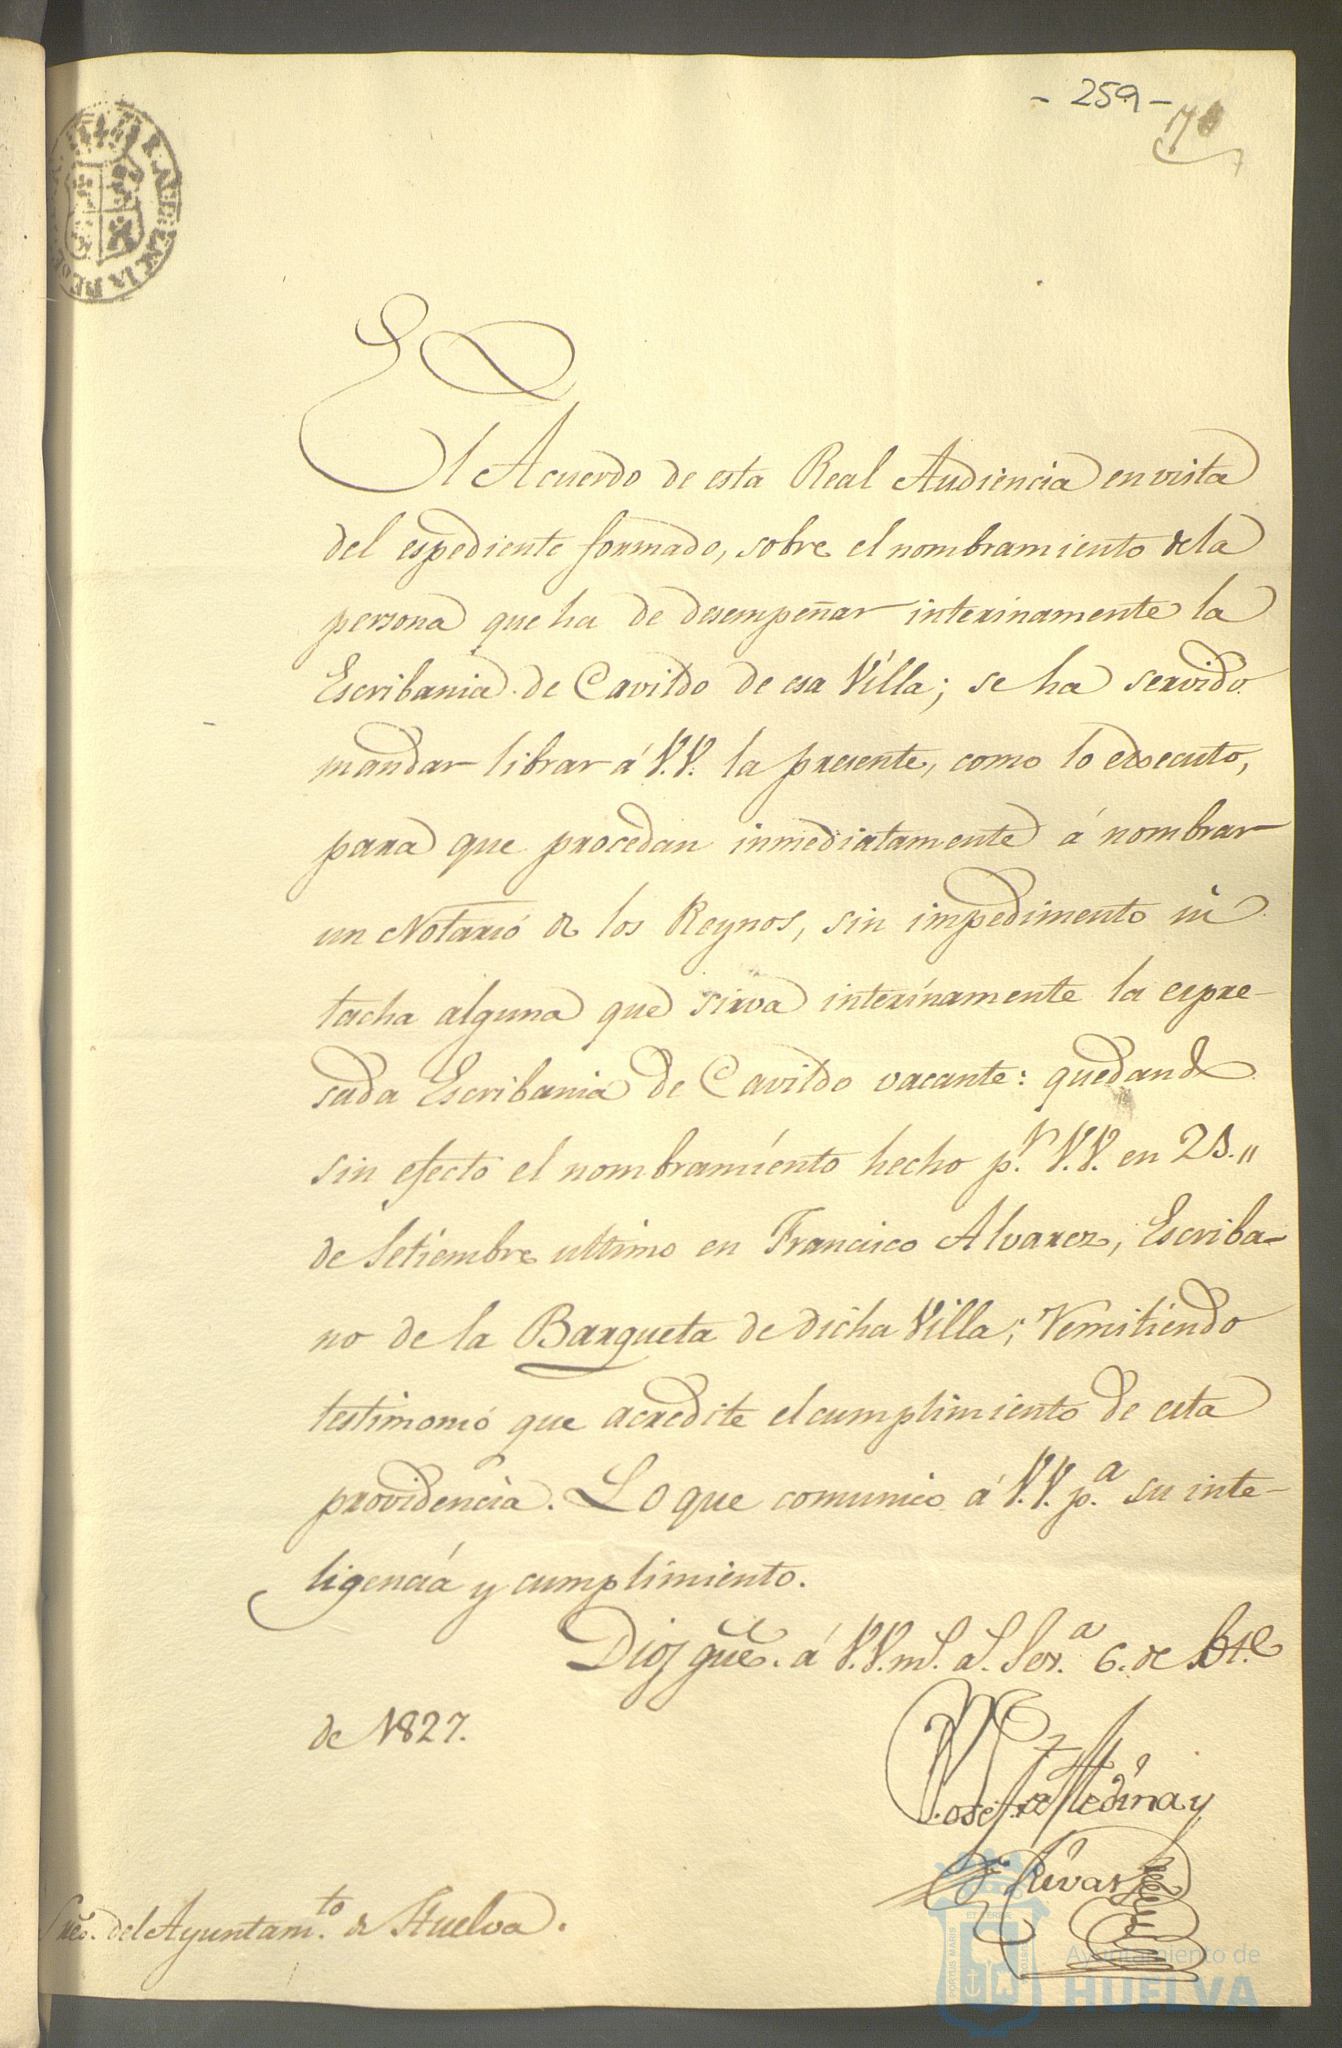 - 259 -
R. AUDIENCIA DE SE
El Acuerdo de esta Real Audiencia en vista
del espediente formado, sobre el nombramiento de la
persona que ha de desempeñar interinamente la
Escribania de Cavildo de esa Villa; se ha servido
mandar librar á V.V. la presente, como lo executo,
para que procedan inmediatamente á nombrar
un Notario de los Reynos, sin impedimento ni
tacha alguna que sirva interinamente la espre-
sada Escribania de Cavildo vacante: quedando
sin efecto el nombramiento hecho p.r V.V. en 28.,,
de Setiembre ultimo en Francisco Alvarez, Escriba-
no de la Barqueta de dicha Villa; remitiendo
testimonio que acredite el cumplimiento de esta
providencia. Lo que comunico á V.V. p.a su inte-
ligencia y cumplimiento.
Dios gue. á V.V. m.s a.s Sev.a 6. de
de 1827.
Medina y
Rivas
Sres. del Ayuntam.to de Huelva.
PORTUS MARIS
Ayuntamiento de
HUELVA